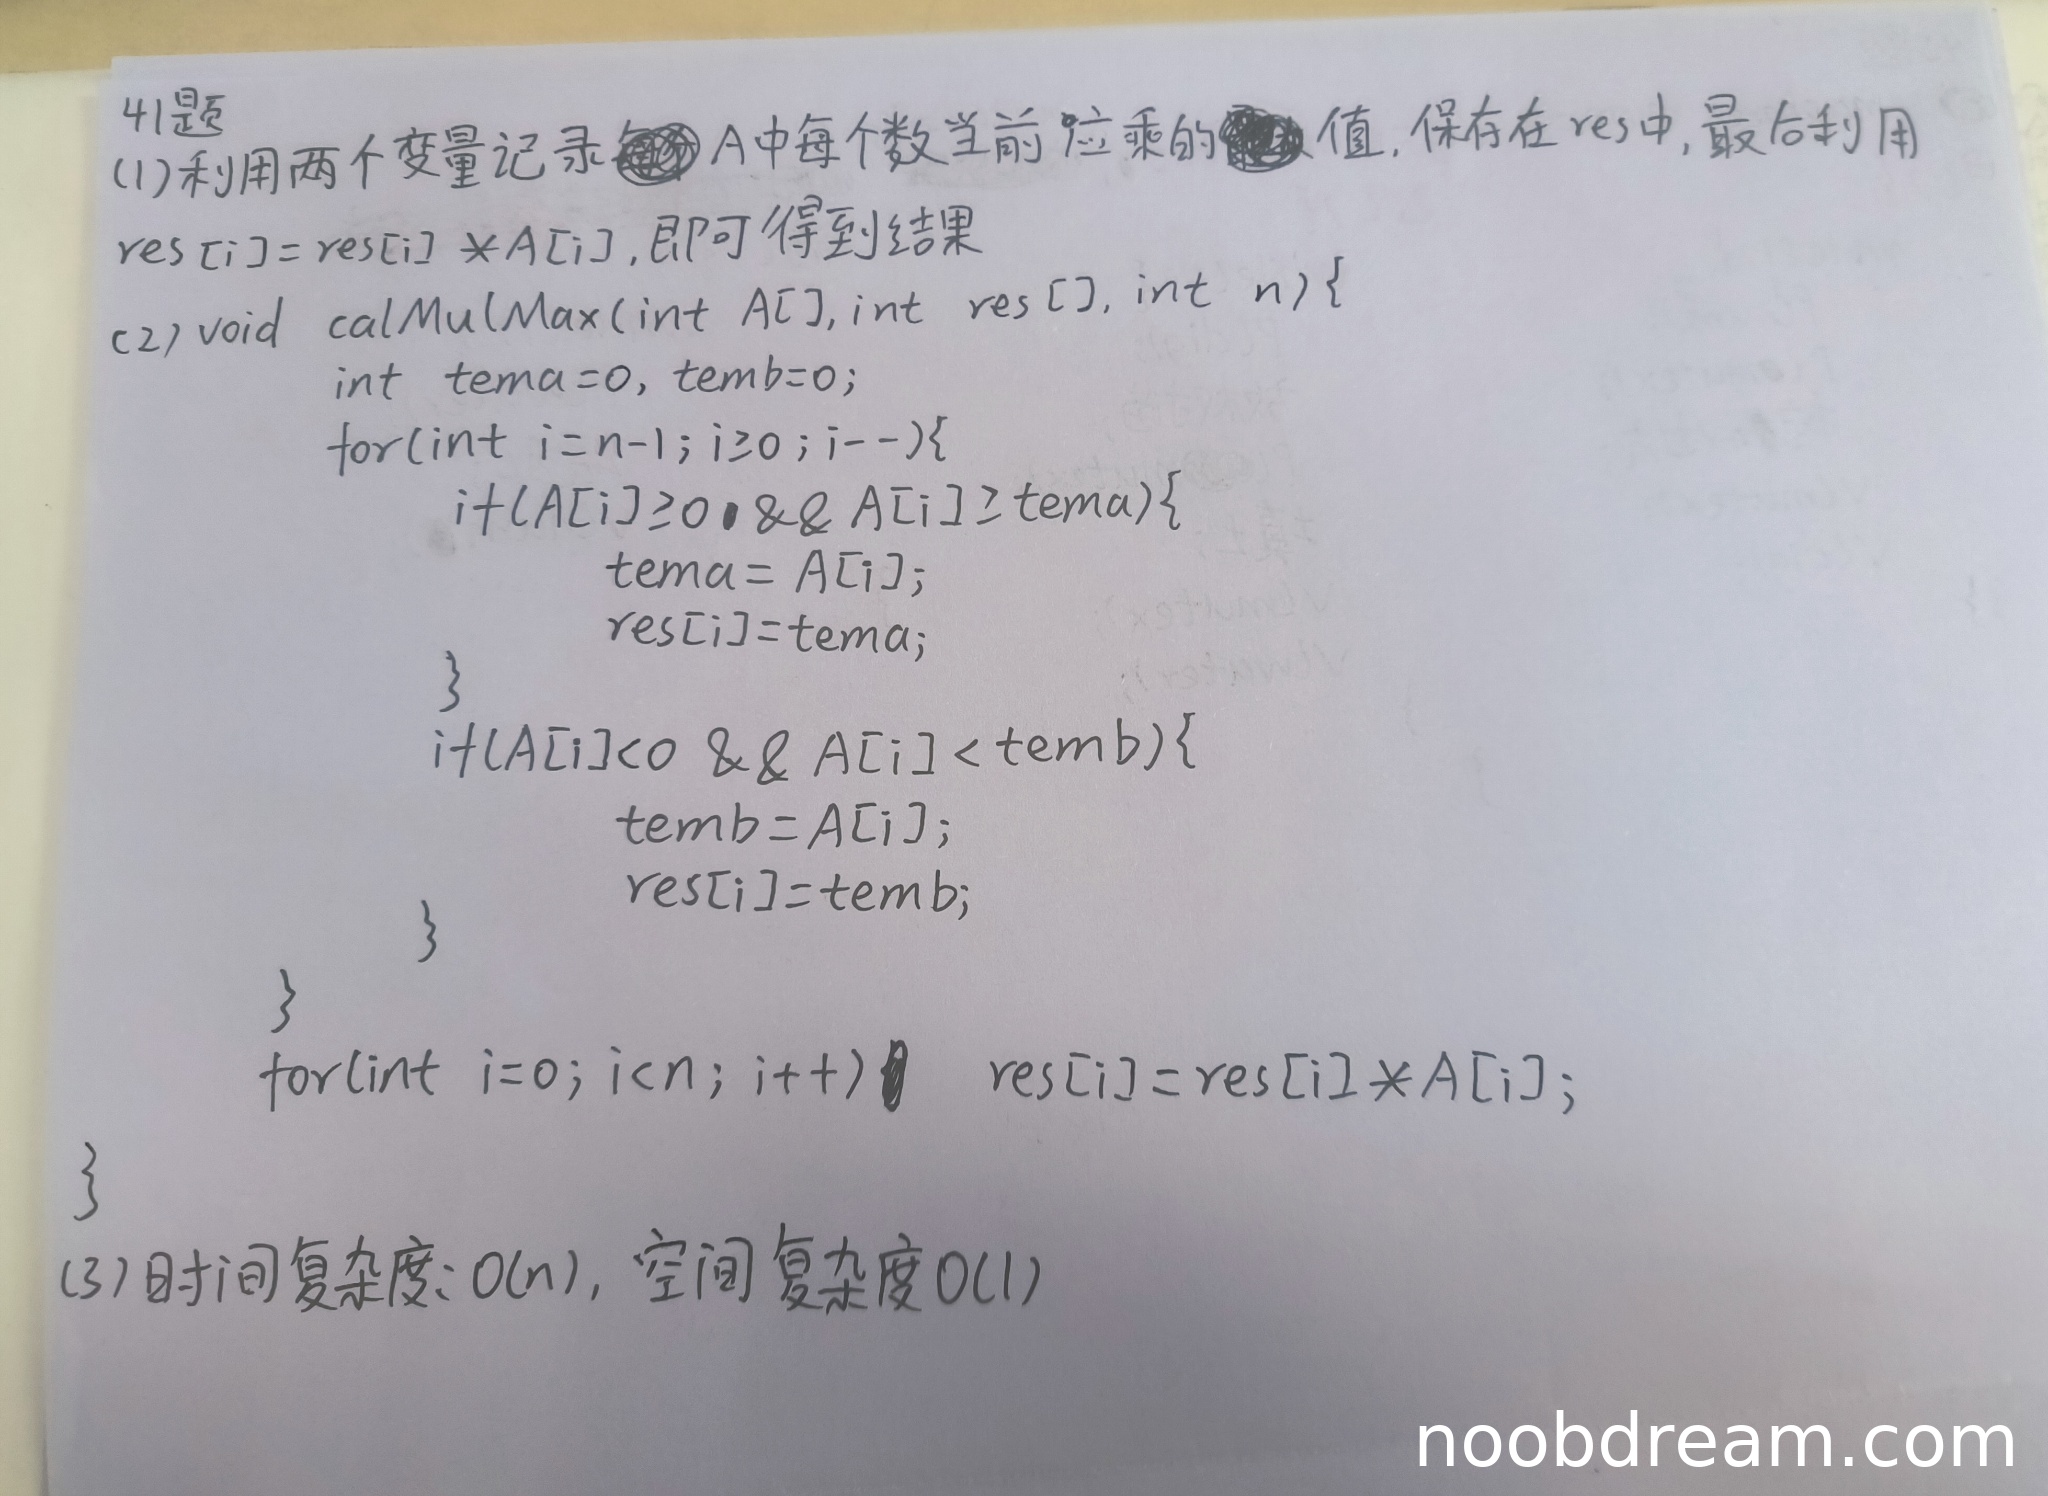 41题
(1)利用两个变量记录 A中每个数当前应乘的 值,保存在res中,最后利用
res[i]=res[i]*A[i],即可得到结果
(2)void calMulMax(int A[],int res[],int n){
int tema=0, temb=0;
for(int i=n-1;i≥0;i--){
if(A[i]≥0 && A[i]≥tema){
tema=A[i];
res[i]=tema;
}
if(A[i]<0 && A[i]<temb){
temb=A[i];
res[i]=temb;
}
}
for(int i=0;i<n;i++) res[i]=res[i]*A[i];
}
(3)时间复杂度:O(n),空间复杂度O(1)
noobdream.com